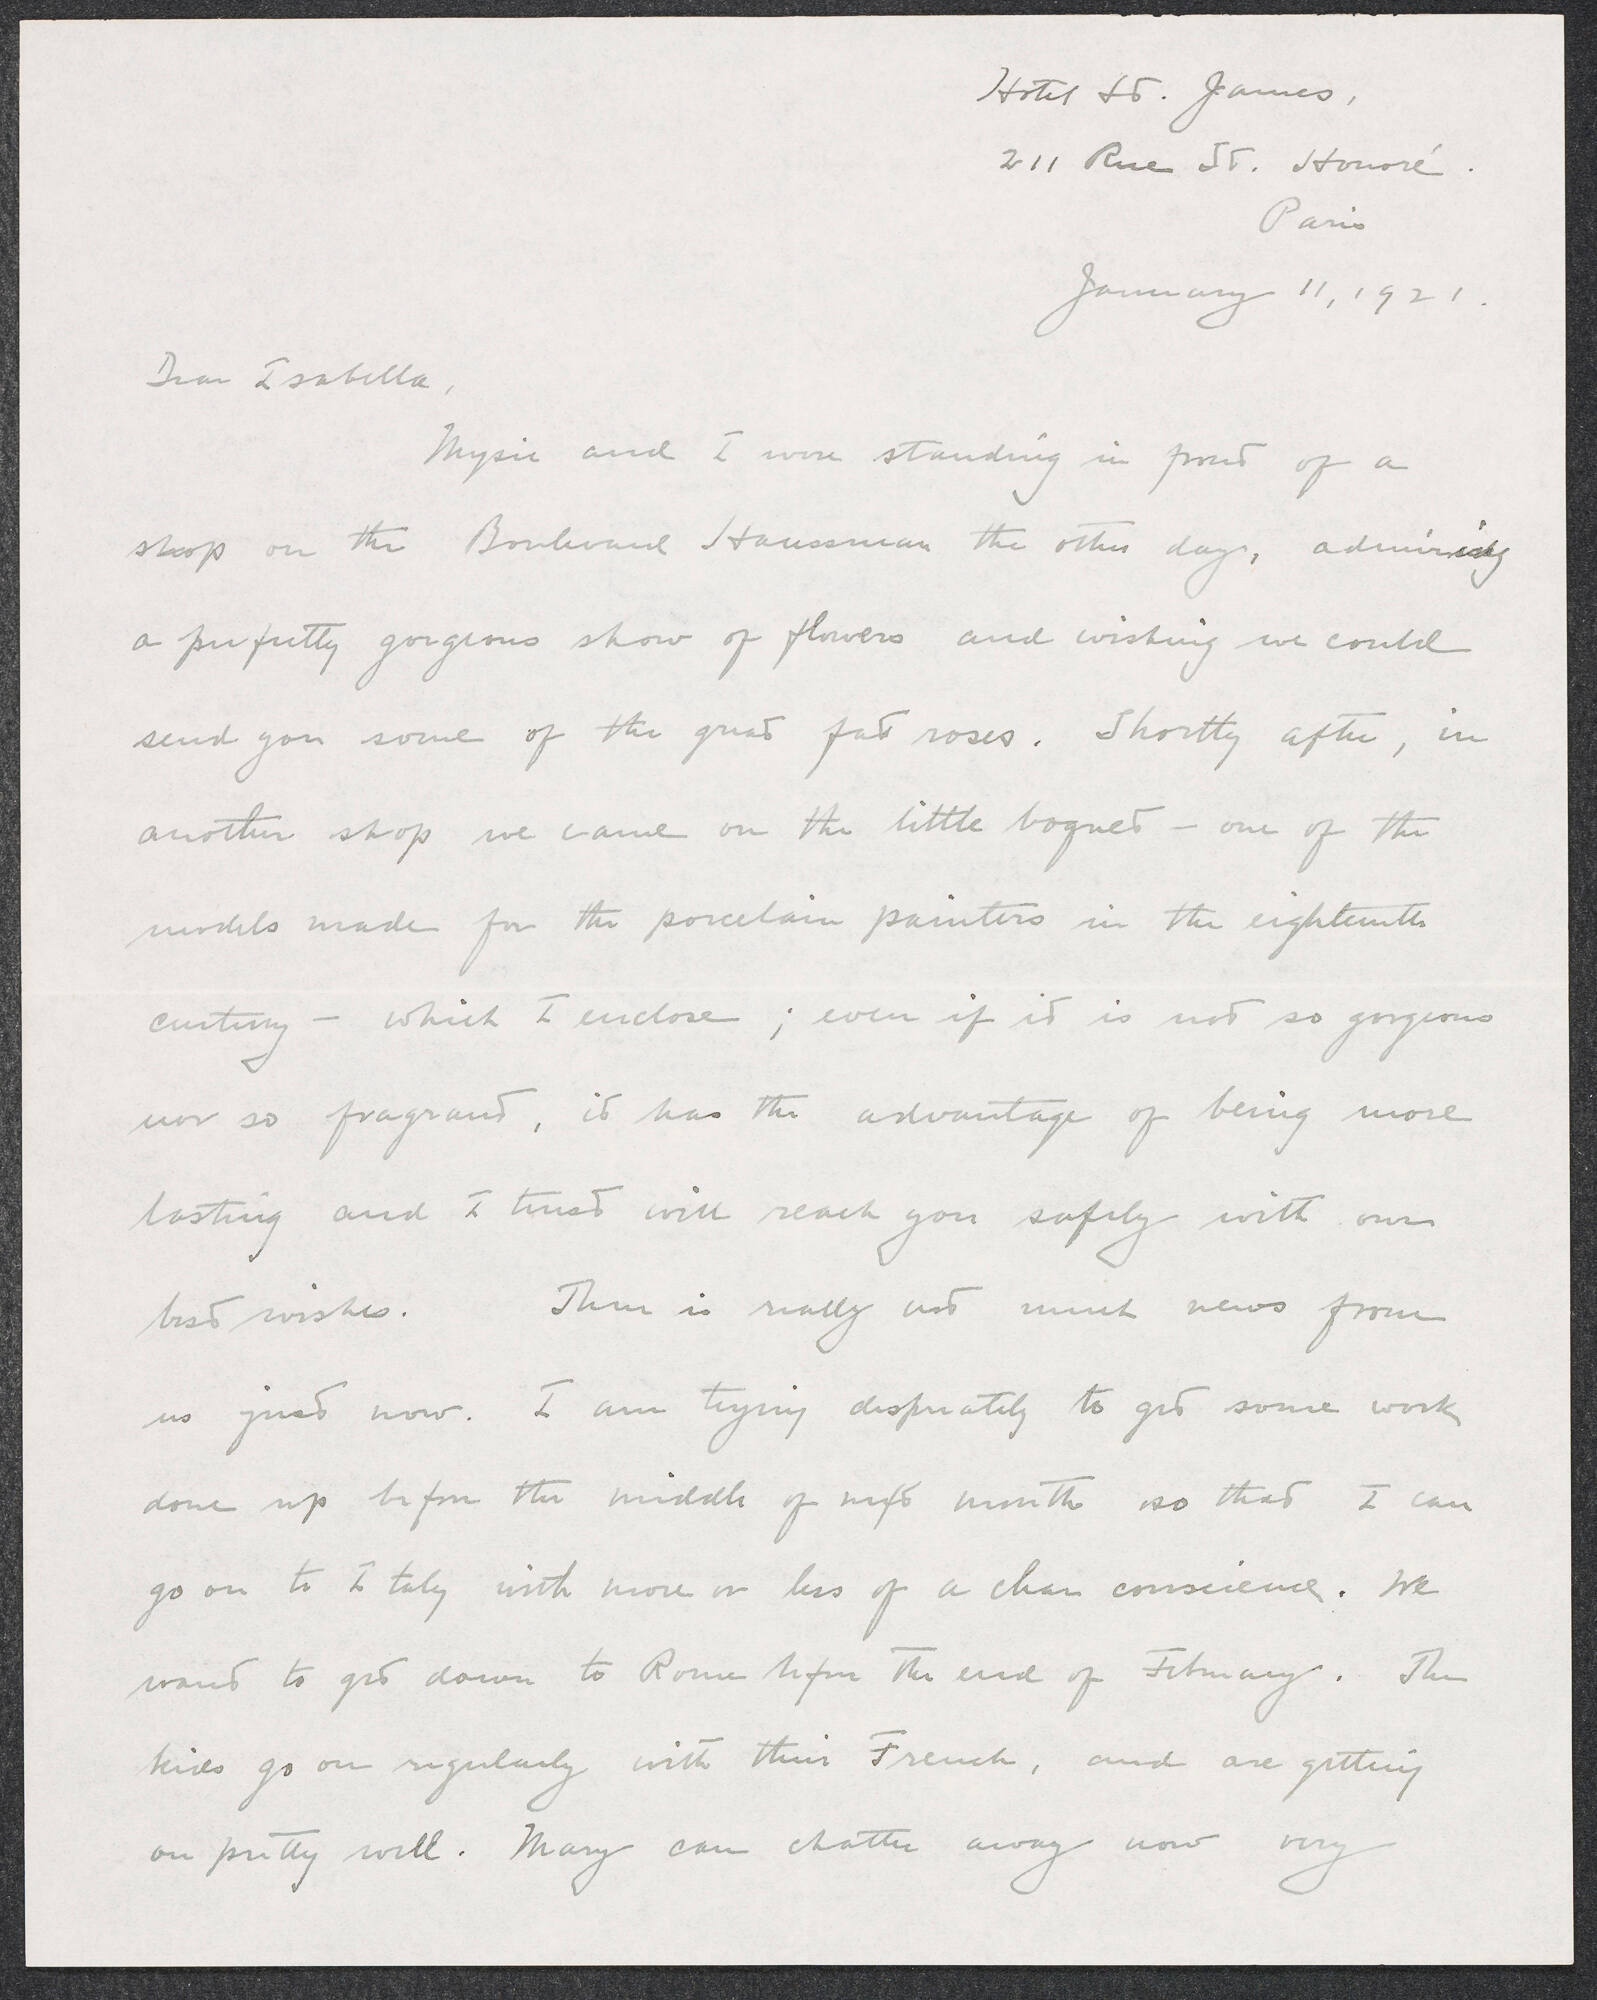 Hotel St. James,
211 Rue St. Honoré.
Paris
January 11, 1921.
Dear Isabella,
Mysie and I were standing in front of a
shop on the Boulevard Haussman the other day, admiring
a perfectly gorgeous show of flowers and wishing we could
send you some of the great fat roses. Shortly after, in
another shop we came on the little boquet – one of the
models made for the porcelain painters in the eighteenth
century – which I enclose; even if it is not so gorgeous
nor so fragrant, it has the advantage of being more
lasting and I trust will reach you safely with our
best wishes. There is really not much news from
us just now. I am trying desperately to get some work
done up before the middle of next month so that I can
go on to Italy with more or less of a clear conscience. We
want to get down to Rome before the end of February. The
kids go on regularly with their French, and are getting
on pretty well. Mary can chatter away now very